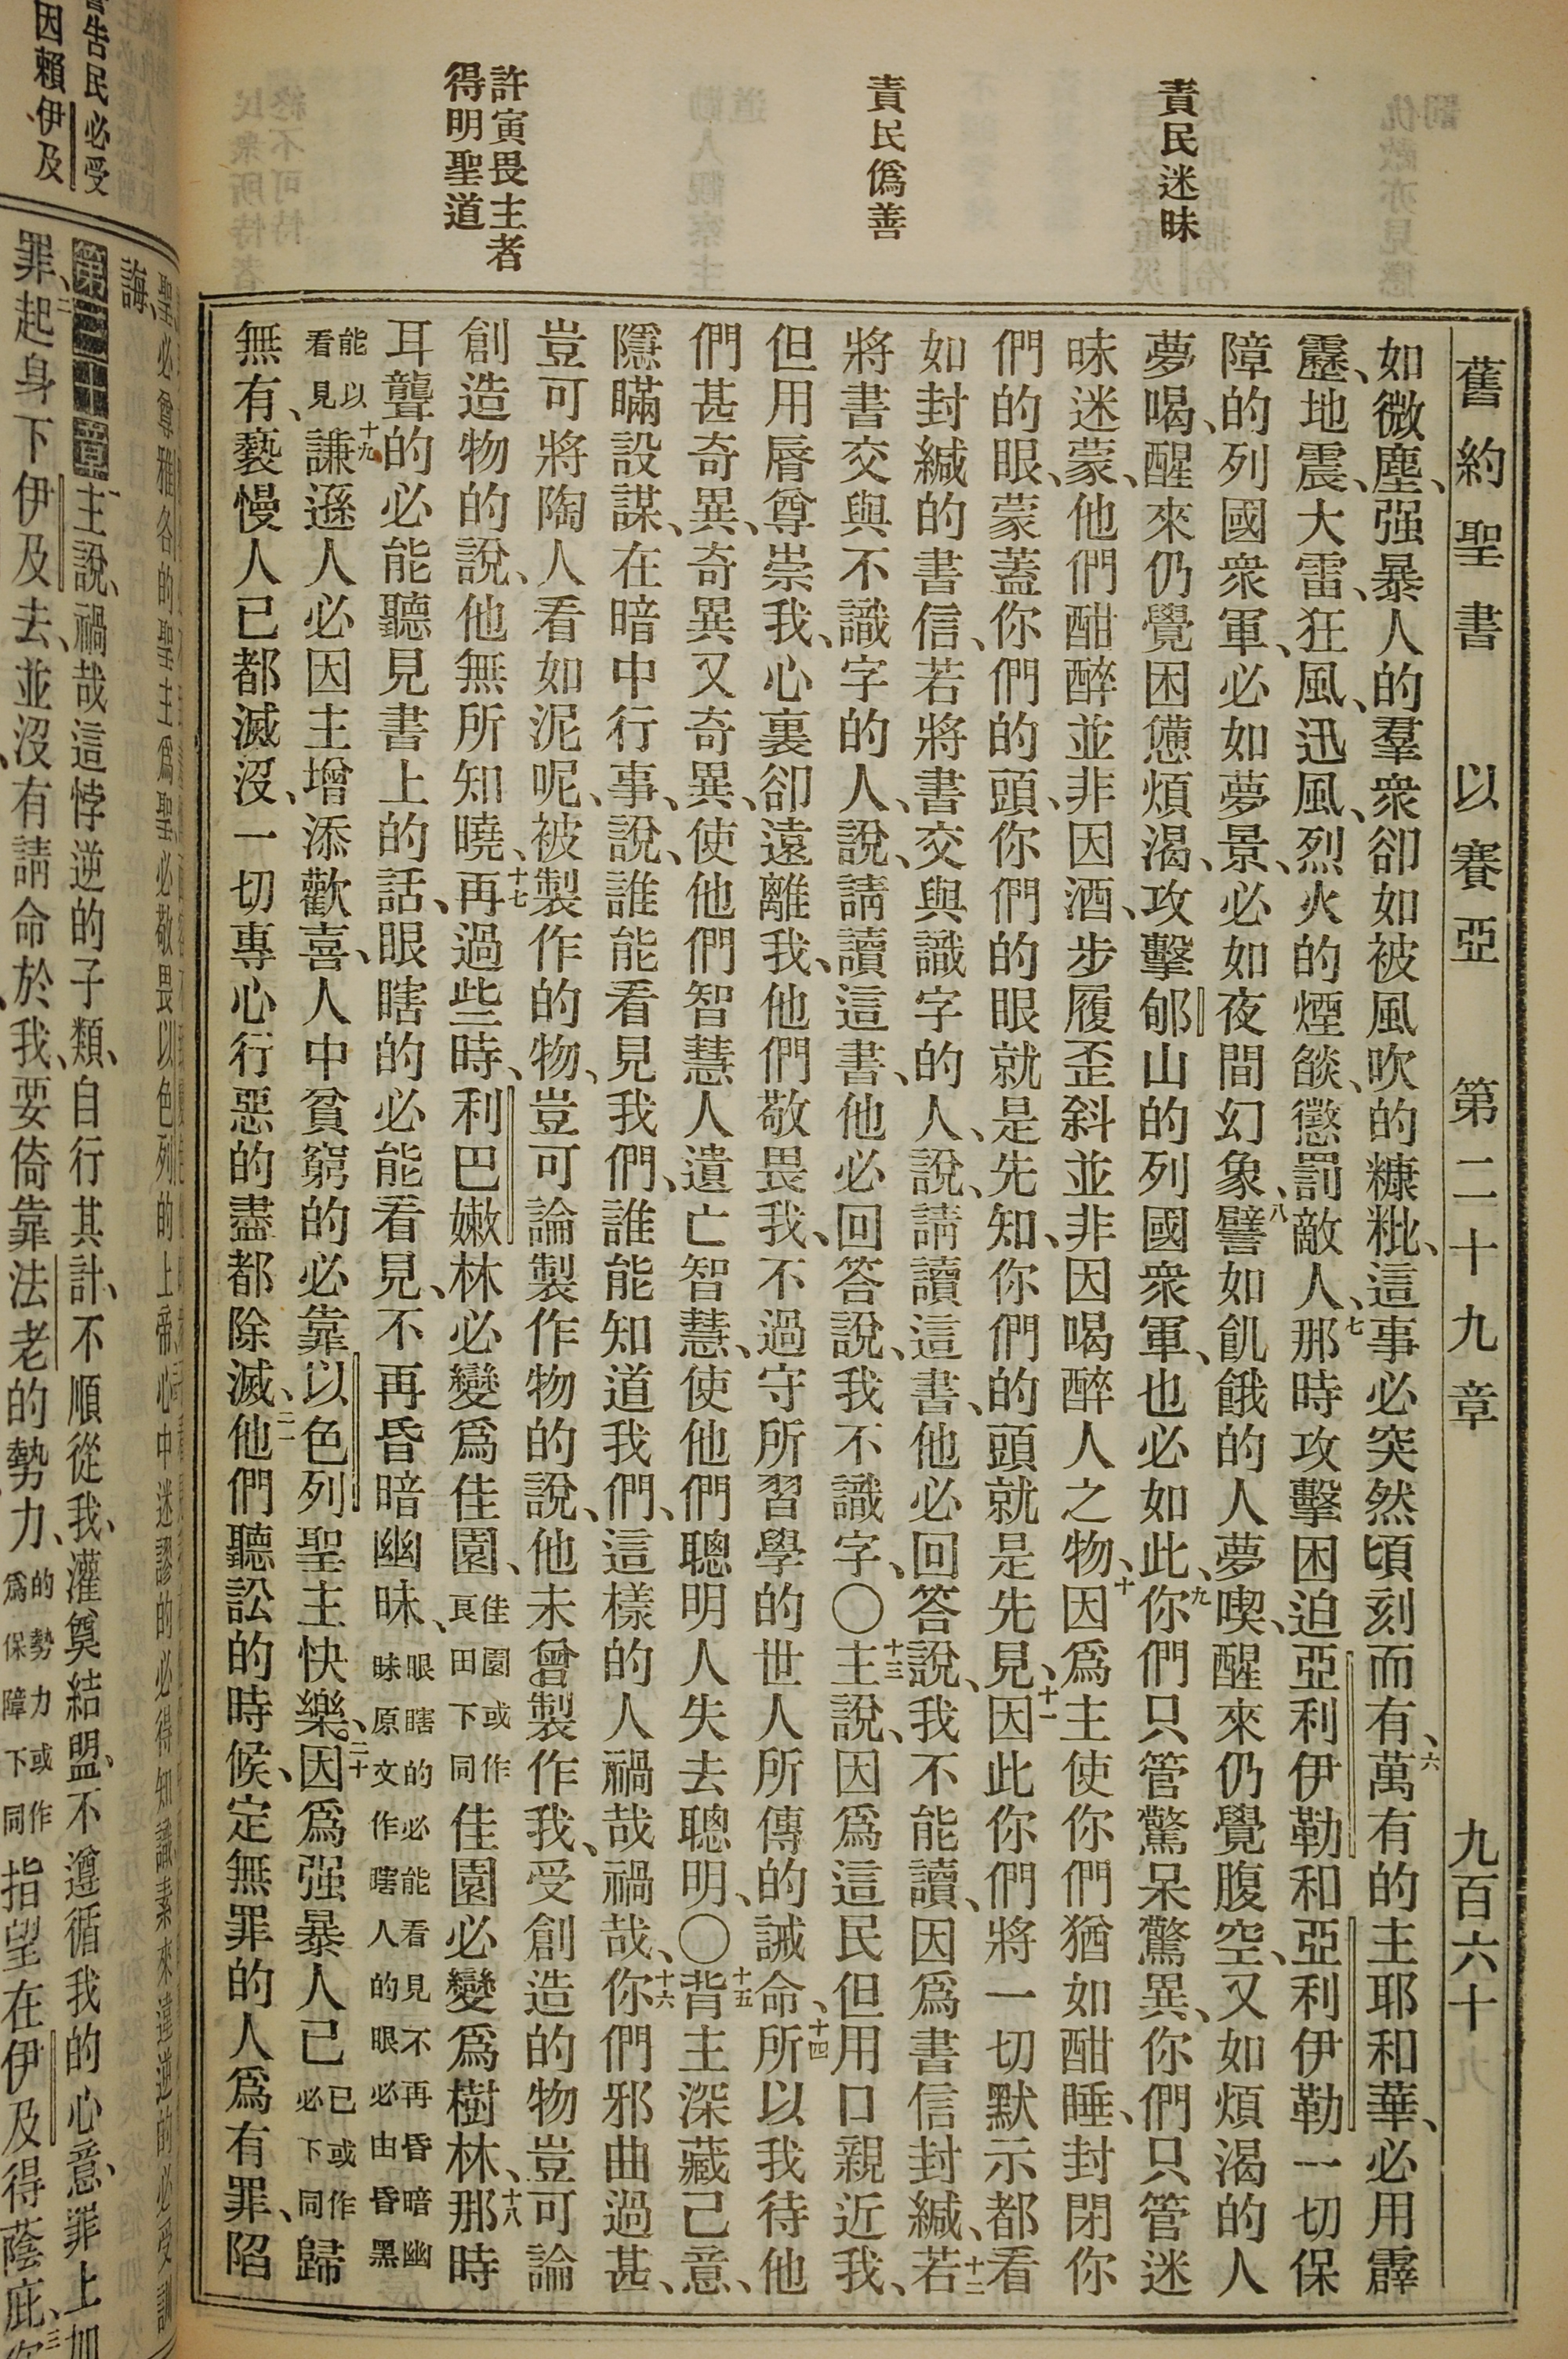 舊約聖書 以賽亞 第二十九章 九百六十九
責民迷昧
責民僞善
許寅畏主者
得明聖道
如微塵、强暴人的羣衆卻如被風吹的糠粃、這事必突然頃刻而有、六萬有的主耶和華、必用霹
靂、地震、大雷、狂風、迅風、烈火的煙燄、懲罰敵人、七那時攻擊困迫亞利伊勒和亞利伊勒一切保
障的列國衆軍、必如夢景、必如夜間幻象、八譬如飢餓的人夢喫、醒來仍覺腹空、又如煩渴的人
夢喝、醒來仍覺困憊煩渴、攻擊郇山的列國衆軍、也必如此、九你們只管驚呆驚異、你們只管迷
昧迷蒙、他們酣醉並非因酒、步履歪斜並非因喝醉人之物、十因爲主使你們猶如酣睡、封閉你
們的眼、蒙蓋你們的頭、你們的眼就是先知、你們的頭就是先見、十一因此你們將一切默示都看
如封緘的書信、若將書交與識字的人、說、請讀這書、他必回答說、我不能讀、因爲書信封緘、十二若
將書交與不識字的人、說、請讀這書、他必回答說、我不識字、〇十三主說、因爲這民但用口親近我、
但用脣尊崇我、心裏卻遠離我、他們敬畏我、不過守所習學的世人所傳的誡命、十四所以我待他
們甚奇異、奇異又奇異、使他們智慧人遺亡智慧、使他們聰明人失去聰明、〇十五背主深藏己意、
隱瞞設謀、在暗中行事、說、誰能看見我們、誰能知道我們、這樣的人禍哉禍哉、十六你們邪曲過甚、
豈可將陶人看如泥呢、被製作的物、豈可論製作物的說、他未曾製作我、受創造的物豈可論
創造物的說、他無所知曉、十七再過些時、利巴嫩林必變爲佳園、佳園或作良田下同佳園必變爲樹林、十八那時
耳聾的必能聽見書上的話、眼瞎的必能看見、不再昏暗幽昧、眼瞎的必能看見不再昏暗幽昧原文作瞎人的眼必由昏黑
能以看見十九謙遜人必因主增添歡喜、人中貧窮的必靠以色列聖主快樂、二十因爲强暴人已已或作必下同歸
無有、褻慢人已都滅沒、一切專心行惡的盡都除滅、二一他們聽訟的時候、定無罪的人爲有罪、陷
告民必受
因賴伊及
聖必尊雅各的聖主爲聖必敬畏以色列的上帝心中迷謬的必得知識素來違逆的必受訓
誨、
第三十章 主說、禍哉這悖逆的子類、自行其計、不順從我、灌奠結盟、不遵循我的心意、罪上加
罪、二起身下伊及去、並沒有請命於我、要倚靠法老的勢力、的勢力或作爲保障下同指望在伊及得蔭庇、三